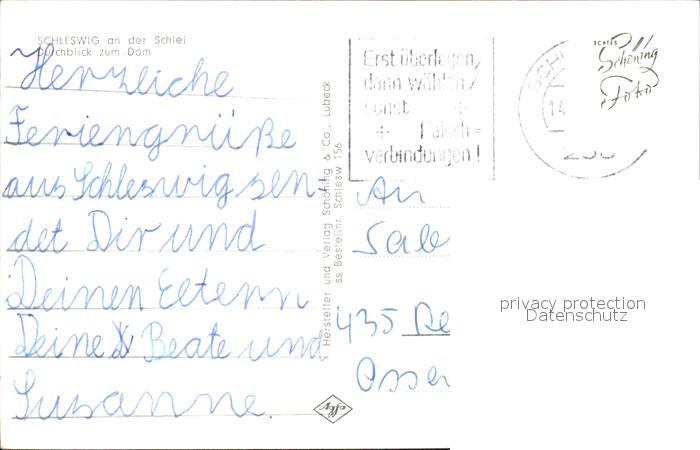 SCHLESWIG an der Schlei
Durchblick zum Dom
Herzleiche
Feriengrüße
aus Schleswig sen-
det Dir und
Deinen Eltern
Deine Beate und
Susanne.
Hersteller und Verlag Schöning & Co., Lübeck
ss Bestellnr. Schlesw 156
Agfa
Erst überlegen,
dann wählen,
sonst
Falsch=
verbindungen!
SCH
14
Schöning
Foto
An
Sab
435 Re
Osser
privacy protection
Datenschutz